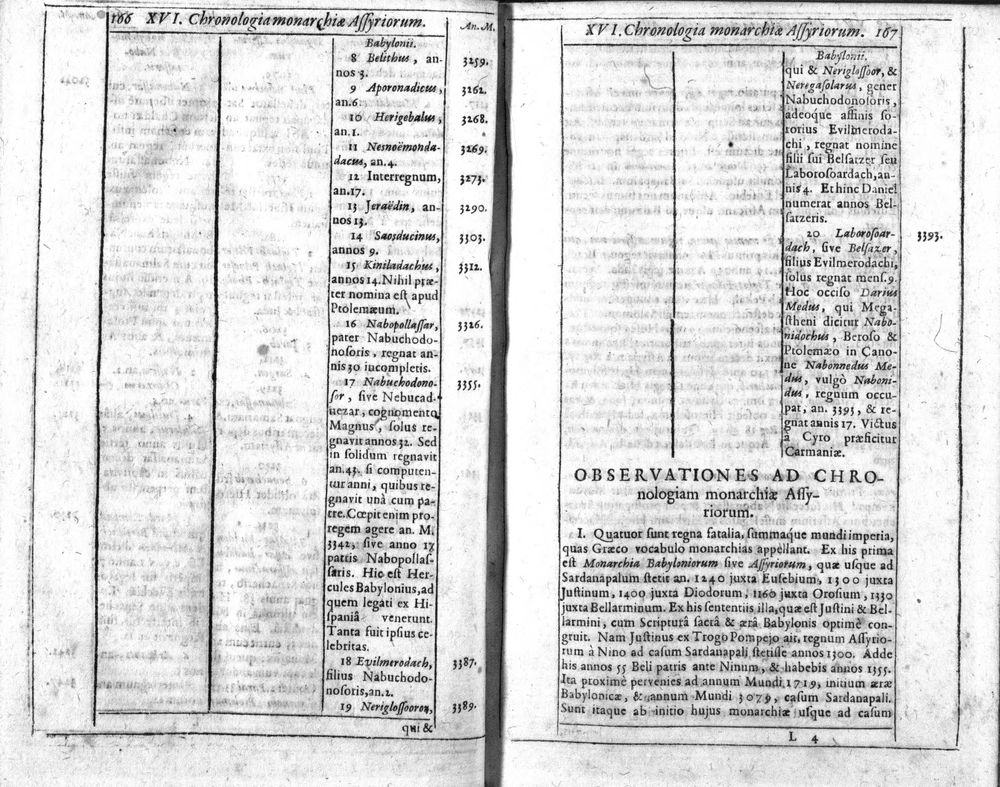 166 XVI. Chronologia monarchiæ Assyriorum.
An. M.
Babylonii.
8 Belithus, an-
nos 3.
3259.
9 Aporonadicus,
an. 6.
3262.
10 Herigebalus,
an. 1.
3268.
11 Nesnoëmonda-
dacus, an. 4.
3269.
12 Interregnum,
an. 17.
3273.
13 Jeraëdin, an-
nos 13.
3290.
14 Saosducinus,
annos 9.
3303.
15 Kiniladachus,
annos 14. Nihil præ-
ter nomina est apud
Ptolemæum.
3312.
16 Nabopollassar,
pater Nabuchodo-
nosoris, regnat an-
nis 30 incompletis.
3326.
17 Nabuchodono-
sor, sive Nebucad-
nezar, cognomento
Magnus, solus re-
gnavit annos 32. Sed
in solidum regnavit
an. 43. si computen-
tur anni, quibus re-
gnavit unà cum pa-
tre. Cœpit enim pro-
regem agere an. M.
3342, sive anno 17
patris Nabopollas-
saris. Hic est Her-
cules Babylonius, ad
quem legati ex Hi-
spaniâ venerunt.
Tanta fuit ipsius ce-
lebritas.
3355.
18 Evilmerodach,
filius Nabuchodo-
nosoris, an. 2.
3387.
19 Neriglossooror,
3389.
qui &
XVI. Chronologia monarchiæ Assyriorum. 167
Babylonii.
qui & Neriglossoor, &
Neregasolarus, gener
Nabuchodonosoris,
adeoque affinis so-
rorius Evilmeroda-
chi, regnat nomine
filii sui Belsatzer seu
Laborosoardach, an-
nis 4. Et hinc Daniel
numerat annos Bel-
satzeris.
20 Laborosoar-
dach, sive Belsazer,
filius Evilmerodachi,
solus regnat mens. 9.
Hoc occiso Darius
Medus, qui Mega-
stheni dicitur Nabo-
nidochus, Beroso &
Ptolemæo in Cano-
ne Nabonnedus Me-
dus, vulgò Naboni-
dus, regnum occu-
pat, an. 3393, & re-
gnat annis 17. Victus
à Cyro præficitur
Carmaniæ.
3393.
OBSERVATIONES AD CHRO-
nologiam monarchiæ Assy-
riorum.
I. Quatuor sunt regna fatalia, summaque mundi imperia,
quas Græco vocabulo monarchias appellant. Ex his prima
est Monarchia Babyloniorum sive Assyriorum, quæ usque ad
Sardanapalum stetit an. 1240 juxta Eusebium, 1300 juxta
Justinum, 1400 juxta Diodorum, 1160 juxta Orosium, 1330
juxta Bellarminum. Ex his sententiis illa, quæ est Justini & Bel-
larmini, cum Scripturâ sacrâ & ærâ Babylonis optimè con-
gruit. Nam Justinus ex Trogo Pompejo ait, regnum Assyrio-
rum à Nino ad casum Sardanapali stetisse annos 1300. Adde
his annos 55 Beli patris ante Ninum, & habebis annos 1355.
Ita proximè pervenies ad annum Mundi 1719, initium æræ
Babylonicæ, & annum Mundi 3079, casum Sardanapali.
Sunt itaque ab initio hujus monarchiæ usque ad casum
L 4